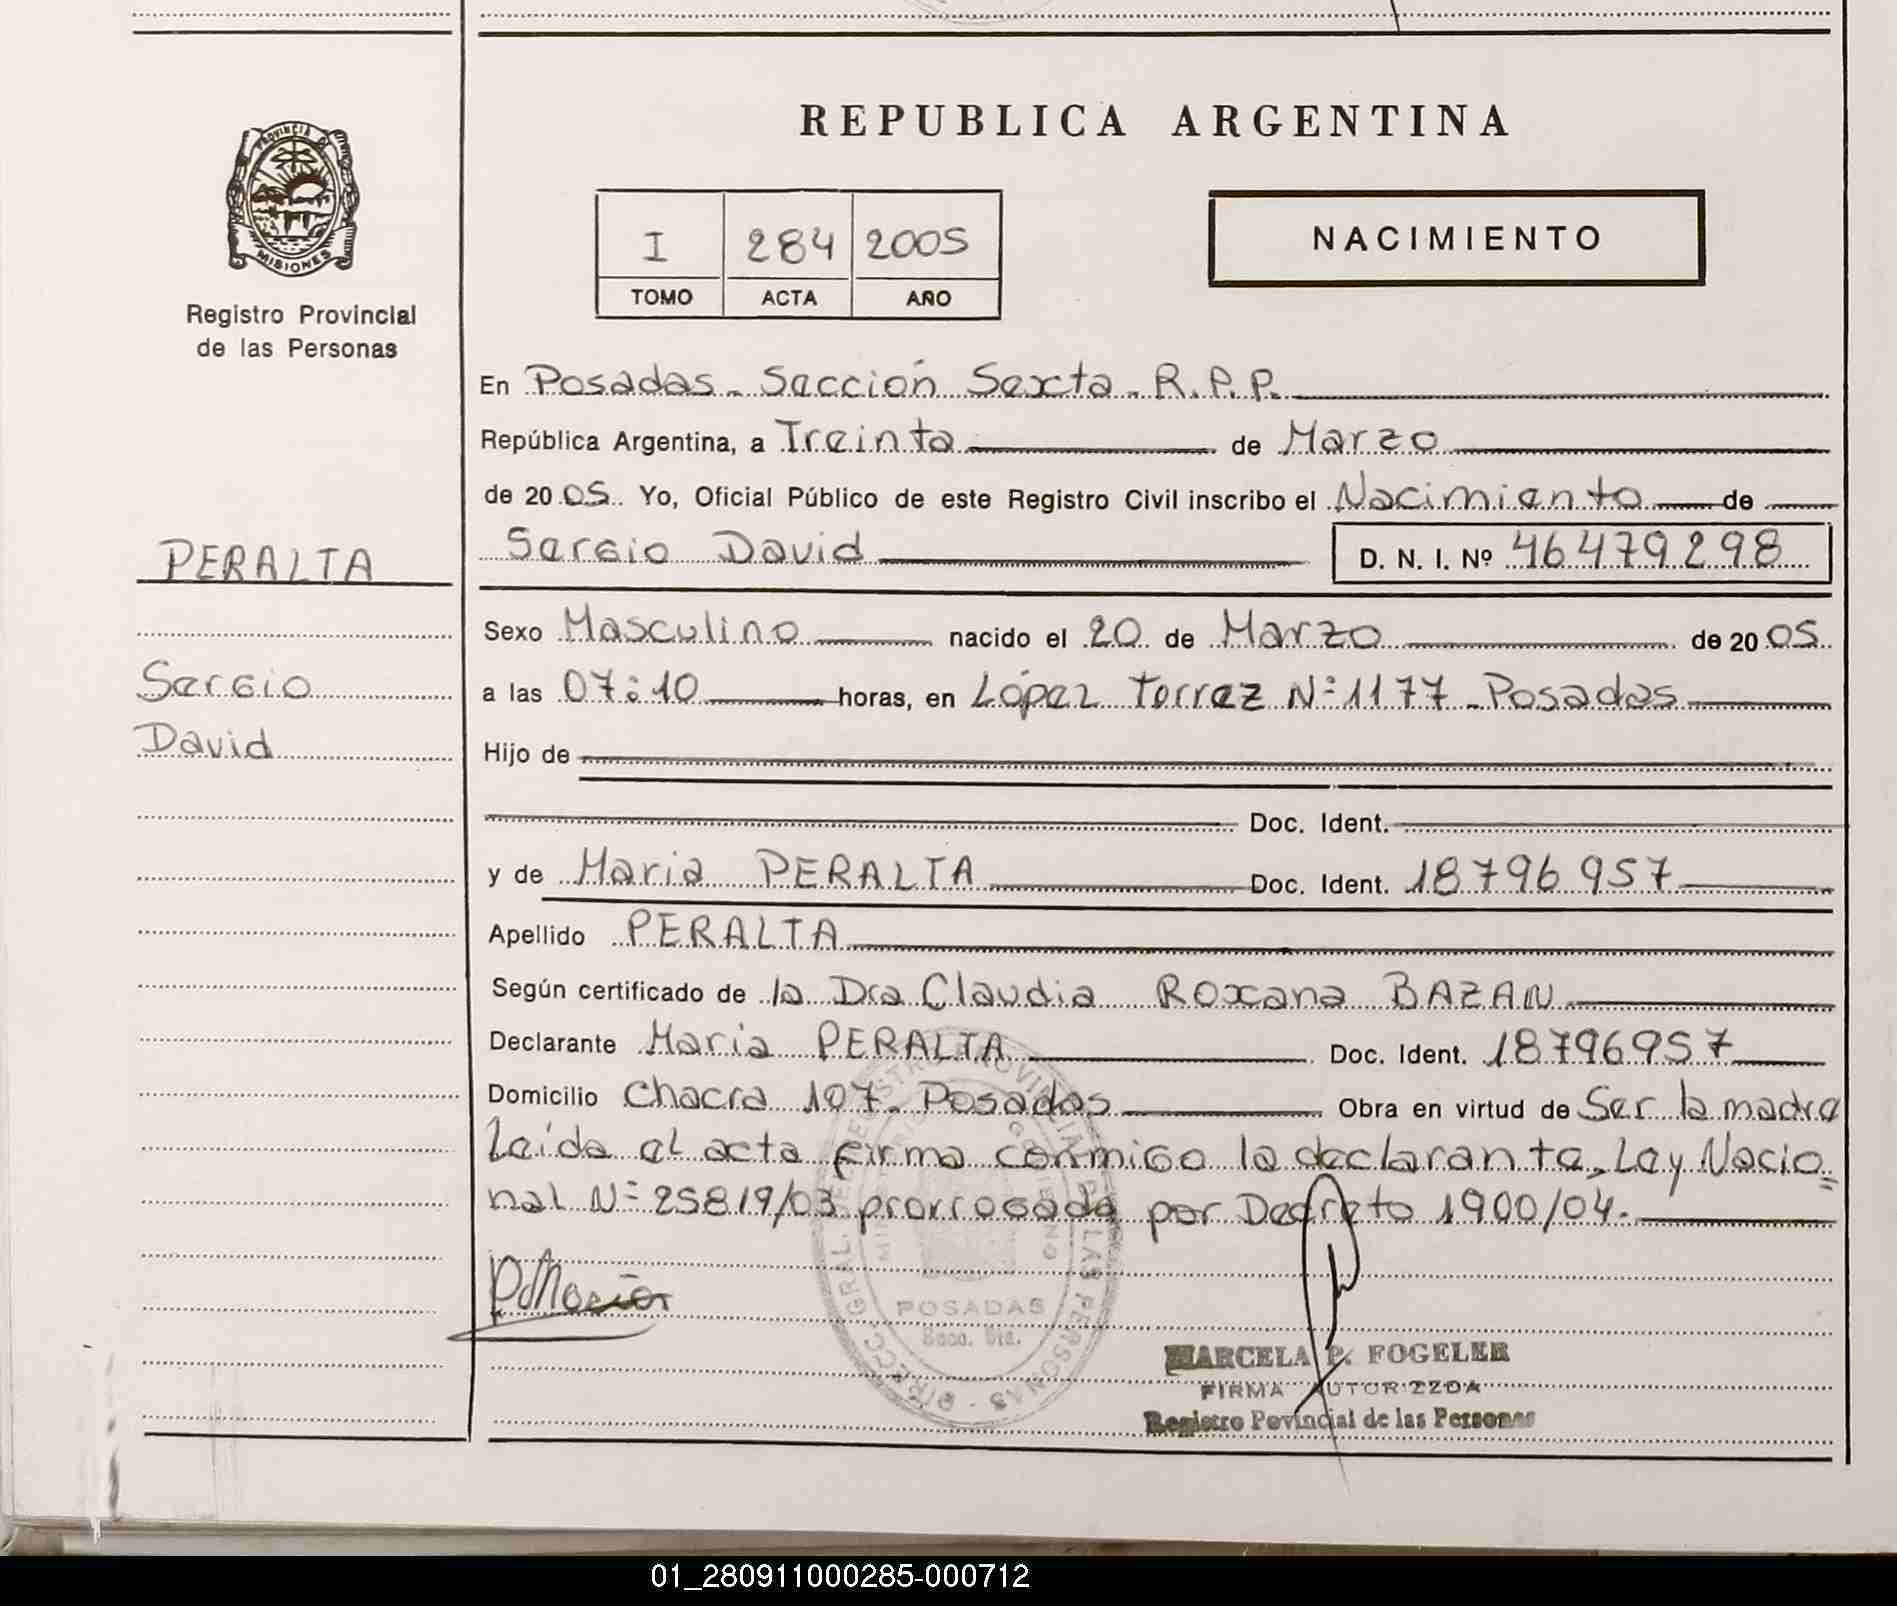 PROVINCIA DE
MISIONES
Registro Provincial
de las Personas
PERALTA
Sergio
David
REPUBLICA ARGENTINA
I 284 2005
TOMO ACTA AÑO
NACIMIENTO
En Posadas - Sección Sexta - R.P.P.
República Argentina, a Treinta de Marzo
de 2005 Yo, Oficial Público de este Registro Civil inscribo el Nacimiento de
Sergio David D. N. I. Nº 46479298
Sexo Masculino nacido el 20 de Marzo de 2005
a las 07:10 horas, en López Torrez Nº 1177 - Posadas
Hijo de
Doc. Ident.
y de Maria PERALTA Doc. Ident. 18796957
Apellido PERALTA
Según certificado de la Dra Claudia Roxana BAZAN
Declarante Maria PERALTA Doc. Ident. 18796957
Domicilio Chacra 107 - Posadas Obra en virtud de Ser la madre
Leída el acta firma conmigo la declarante, Ley Nacio=
nal Nº 25819/03 prorrogada por Decreto 1900/04.
POSADAS
Secc. 6ta.
MARCELA P. FOGELER
FIRMA AUTORIZZDA
Registro Povincial de las Personas
01_280911000285-000712